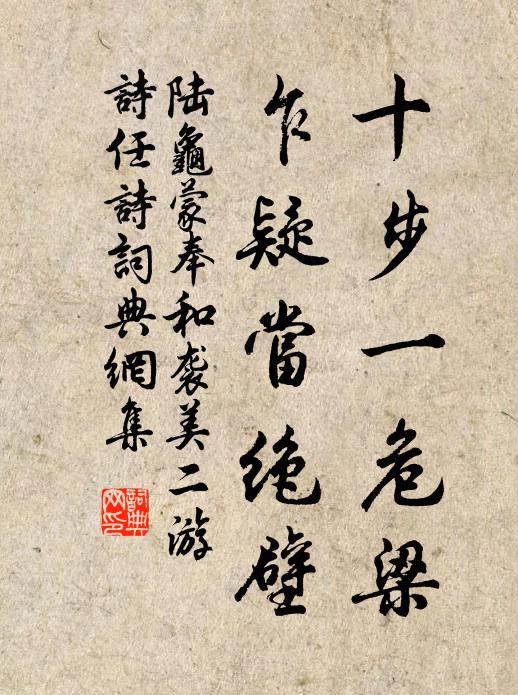 十步一危梁
乍疑當絶壁
陸龜蒙奉和袭美二游
詩任詩詞典網集
詞典
网印